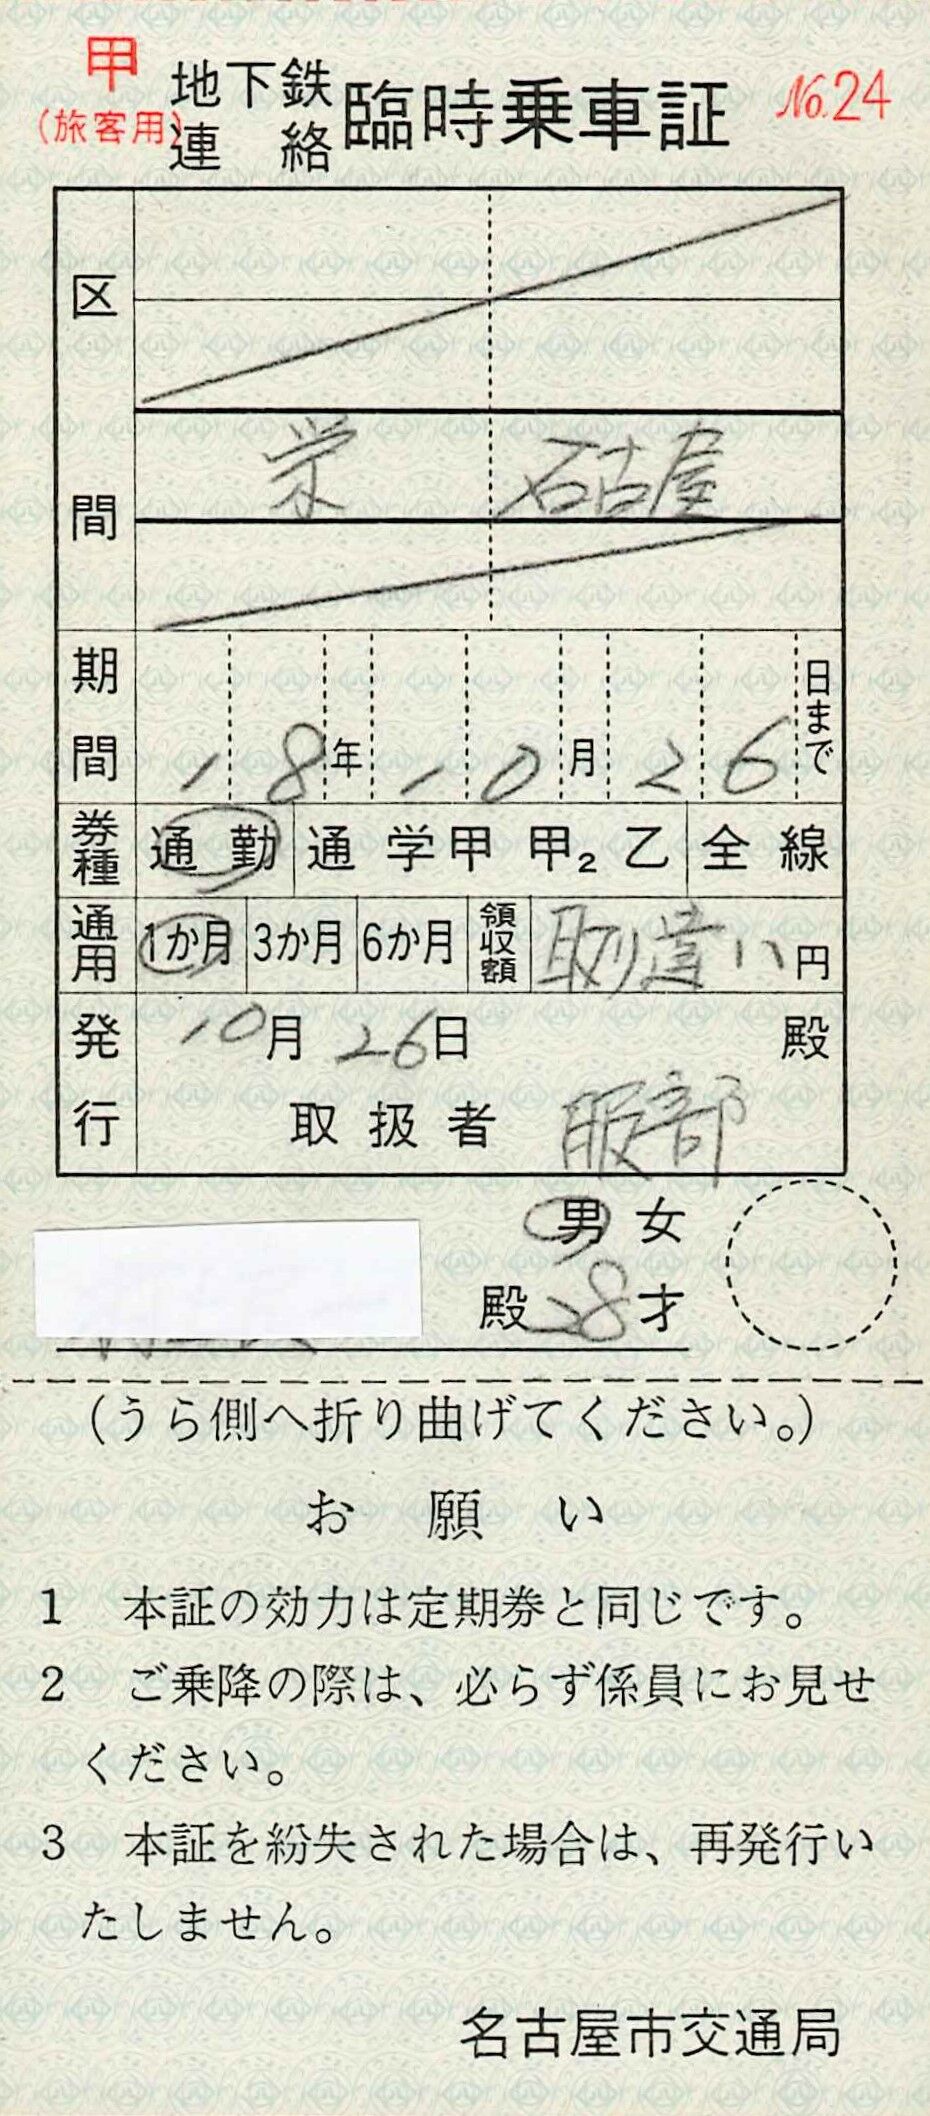 甲
(旅客用)
地下鉄
連絡
臨時乗車証
No.24
区間
栄 名古屋
期間 18年10月26日まで
券種 通勤 通学甲 甲₂ 乙 全線
通用 1か月 3か月 6か月 領収額 取り違い 円
発行 10月26日 殿
取扱者 服部
男 女
殿 28才
(うら側へ折り曲げてください。)
お願い
1 本証の効力は定期券と同じです。
2 ご乗降の際は、必らず係員にお見せ
ください。
3 本証を紛失された場合は、再発行い
たしません。
名古屋市交通局